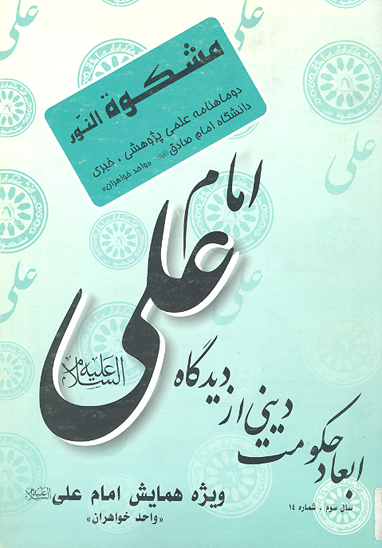 مشكوة النّور
دوماهنامه علمی پژوهشی، خبری
دانشگاه امام صادق (ع) «واحد خواهران»
ابعاد حکومت دینی از دیدگاه
امام علی علیه السلام
ویژه همایش امام علی علیه السلام
«واحد خواهران»
سال سوم، شماره ۱۴
علی
علی
علی
علی